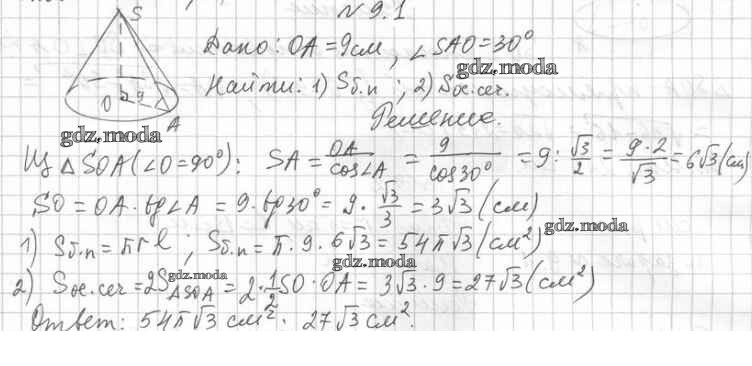 S
N 9.1
Дано: OA = 9 см, ∠SAO = 30°
gdz.moda
Найти: 1) Sб.п ; 2) Sос.сеч.
O 9
A
gdz.moda
Решение.
Из △SOA (∠O = 90°): SA = OA/cos∠A = 9/cos30° = 9 : √3/2 = 9·2/√3 = 6√3 (см)
SO = OA · tg∠A = 9 · tg30° = 9 · √3/3 = 3√3 (см)
gdz.moda
1) Sб.п = πrl ; Sб.п = π · 9 · 6√3 = 54π√3 (см²)
gdz.moda
2) Sос.сеч = 2S△SOA = 2 · 1/2 SO · OA = 3√3 · 9 = 27√3 (см²)
gdz.moda
Ответ: 54π√3 см². 27√3 см².